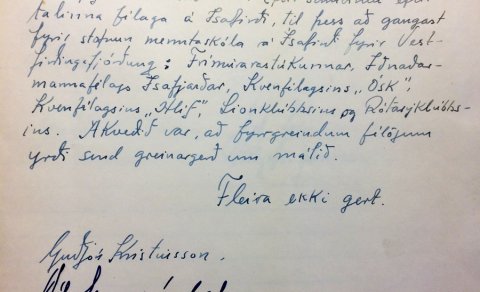 talinna félaga á Ísafirði, til þess að gangast
fyrir stofnun menntaskóla á Ísafirði fyrir Vest-
firðingafjórðung: Frímúrarastúkunnar, Iðnaðar-
mannafélags Ísafjarðar, Kvenfélagsins „Ósk",
Kvenfélagsins „Hlíf", Lionklúbbsins og Rótarýklúbbs-
ins. Ákveðið var, að fyrrgreindum félögum
yrði send greinargerð um málið.
Fleira ekki gert.
Guðjón Kristinsson.